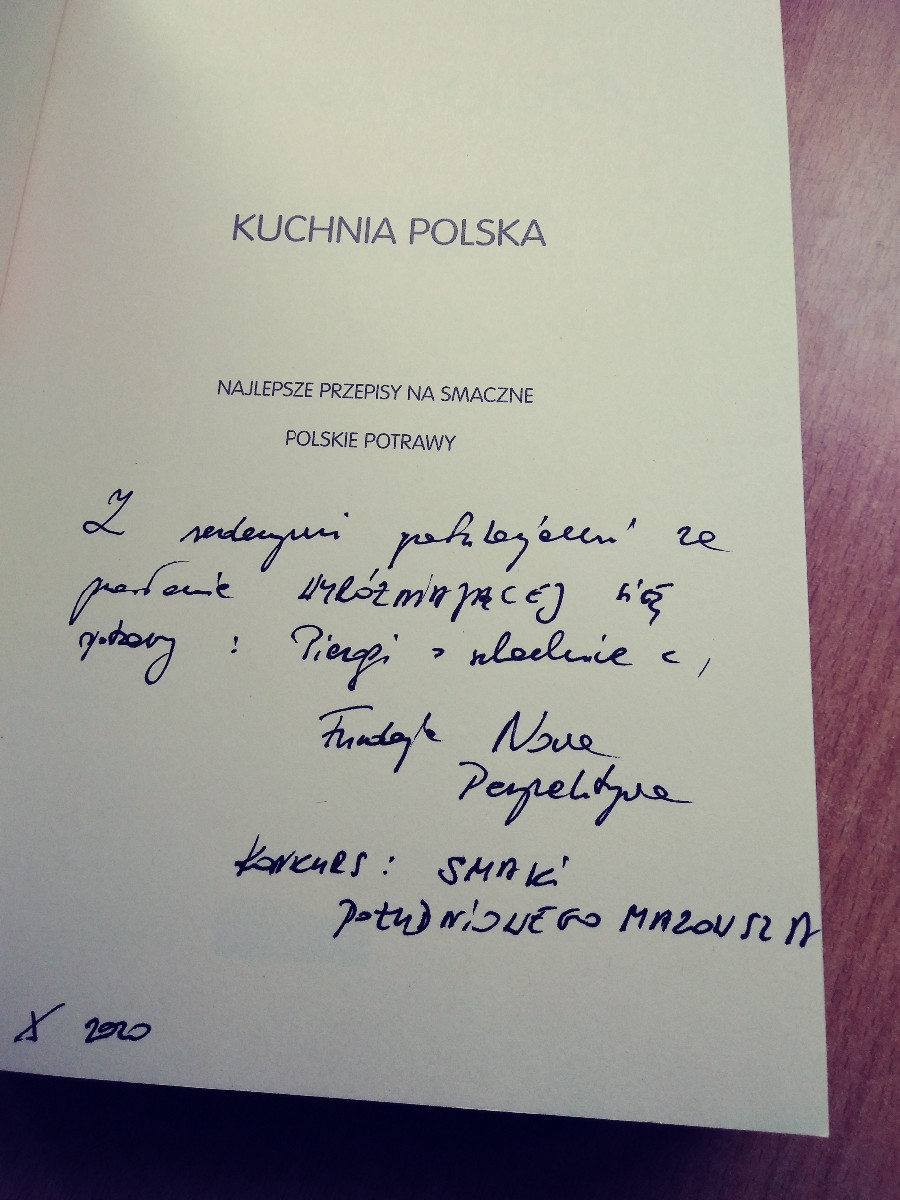 KUCHNIA POLSKA
NAJLEPSZE PRZEPISY NA SMACZNE
POLSKIE POTRAWY
Z serdecznymi podziękowaniami za
podanie WYRÓŻNIAJĄCEJ SIĘ
potrawy : Pierogi z
Fundacja Nowa
Perspektywa
KONKURS : SMAKI
POŁUDNIOWEGO MAZOWSZA
X 2020